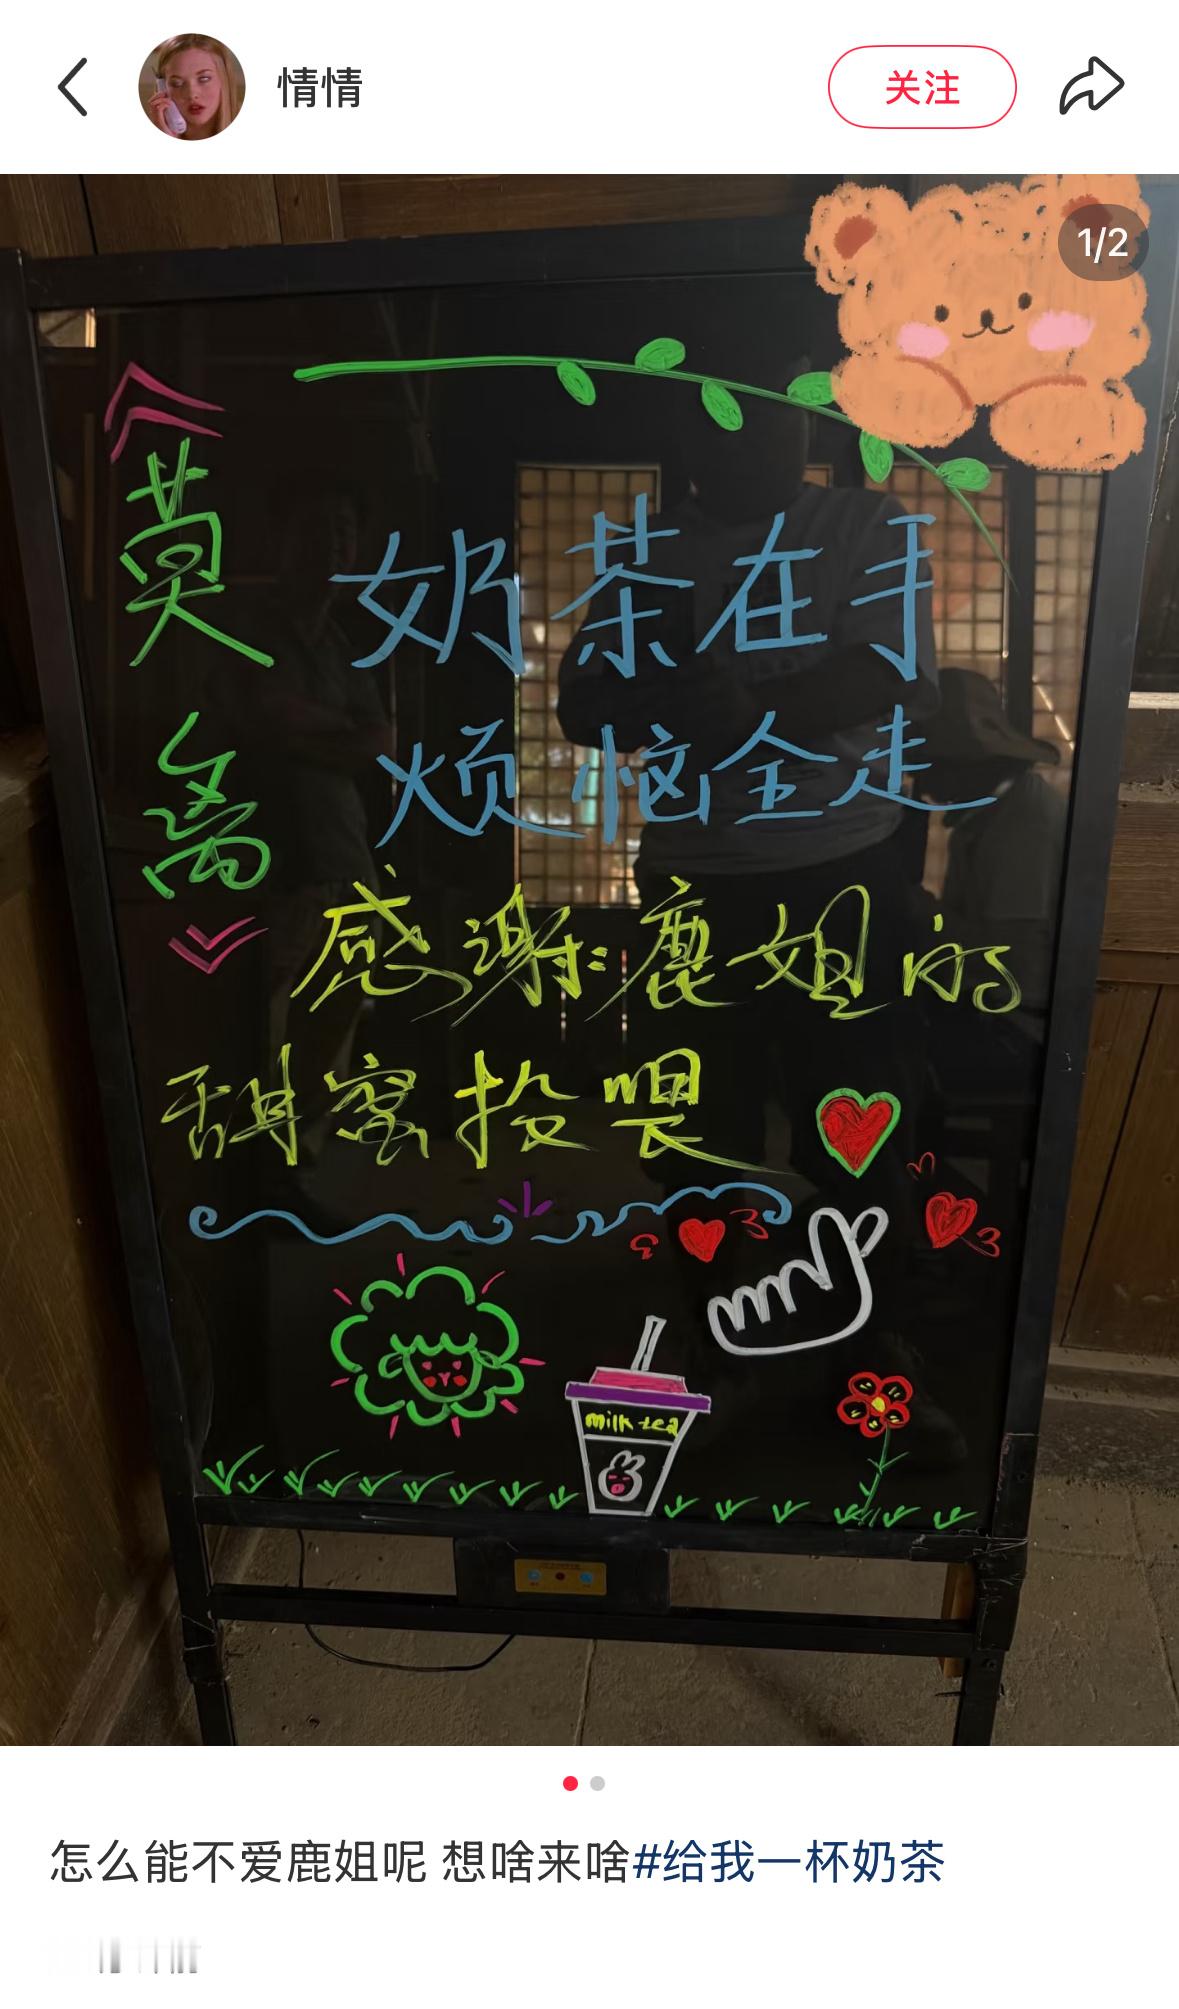 情情
关注
1/2
《莫离》
奶茶在手
烦恼全走
感谢:鹿姐的
甜蜜投喂
milk tea
怎么能不爱鹿姐呢 想啥来啥#给我一杯奶茶